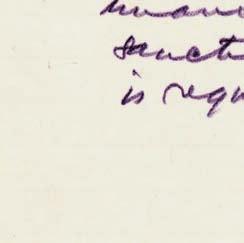 sanct
is requ